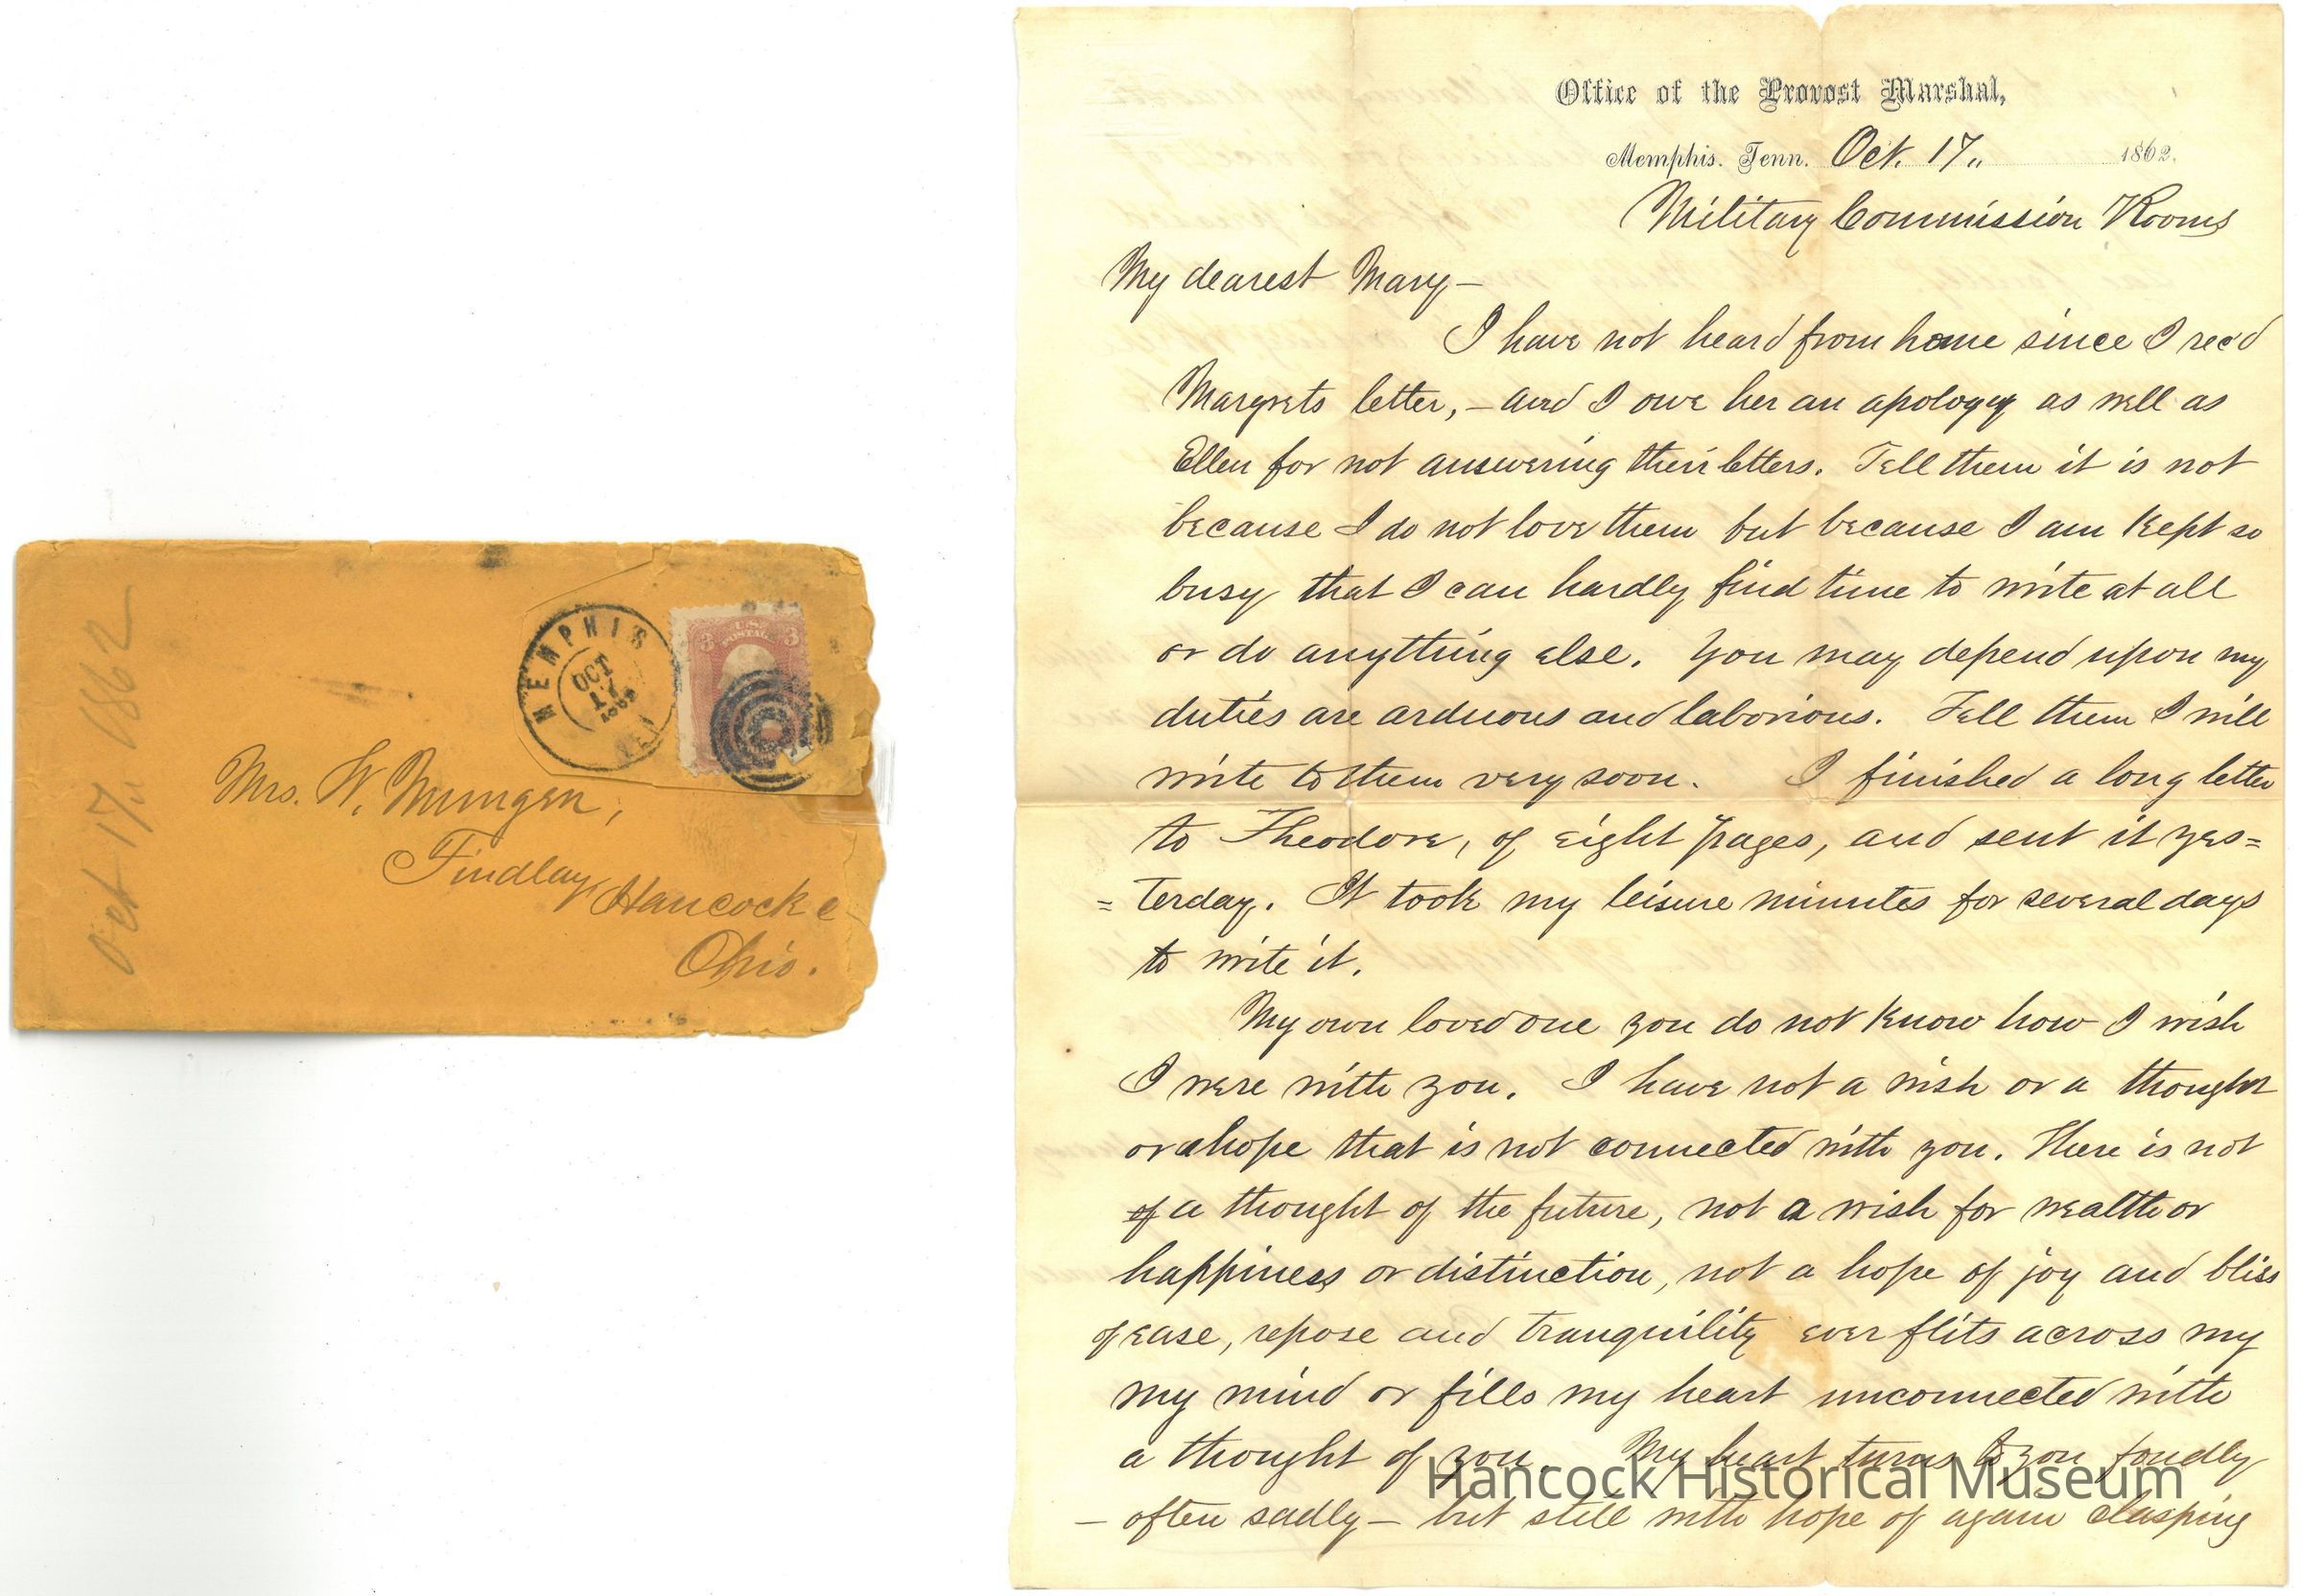 Oct 17,, 1862
MEMPHIS
OCT
17
1862
U.S.
POSTAGE
3 3
Mrs. W. Mungen,
Findlay Hancock c
Ohio.
Office of the Provost Marshal,
Memphis. Tenn. Oct. 17,, 1862.
Military Commission Rooms
My dearest Mary —
I have not heard from home since I rec'd
Margrets letter, — and I owe her an apology as well as
Ellen for not answering their letters. Tell them it is not
because I do not love them but because I am kept so
busy that I can hardly find time to write at all
or do anything else. You may depend upon my
duties are arduous and laborious. Tell them I will
write to them very soon. I finished a long letter
to Theodore, of eight pages, and sent it yes=
= terday. It took my leisure minutes for several days
to write it.
My own loved one you do not know how I wish
I were with you. I have not a wish or a thought
or a hope that is not connected with you. There is not
of a thought of the future, not a wish for wealth or
happiness or distinction, not a hope of joy and bliss
of ease, repose and tranquility ever flits across my
my mind or fills my heart unconnected with
a thought of you. My heart turns to you fondly
— often sadly — but still with hope of again clasping
Hancock Historical Museum